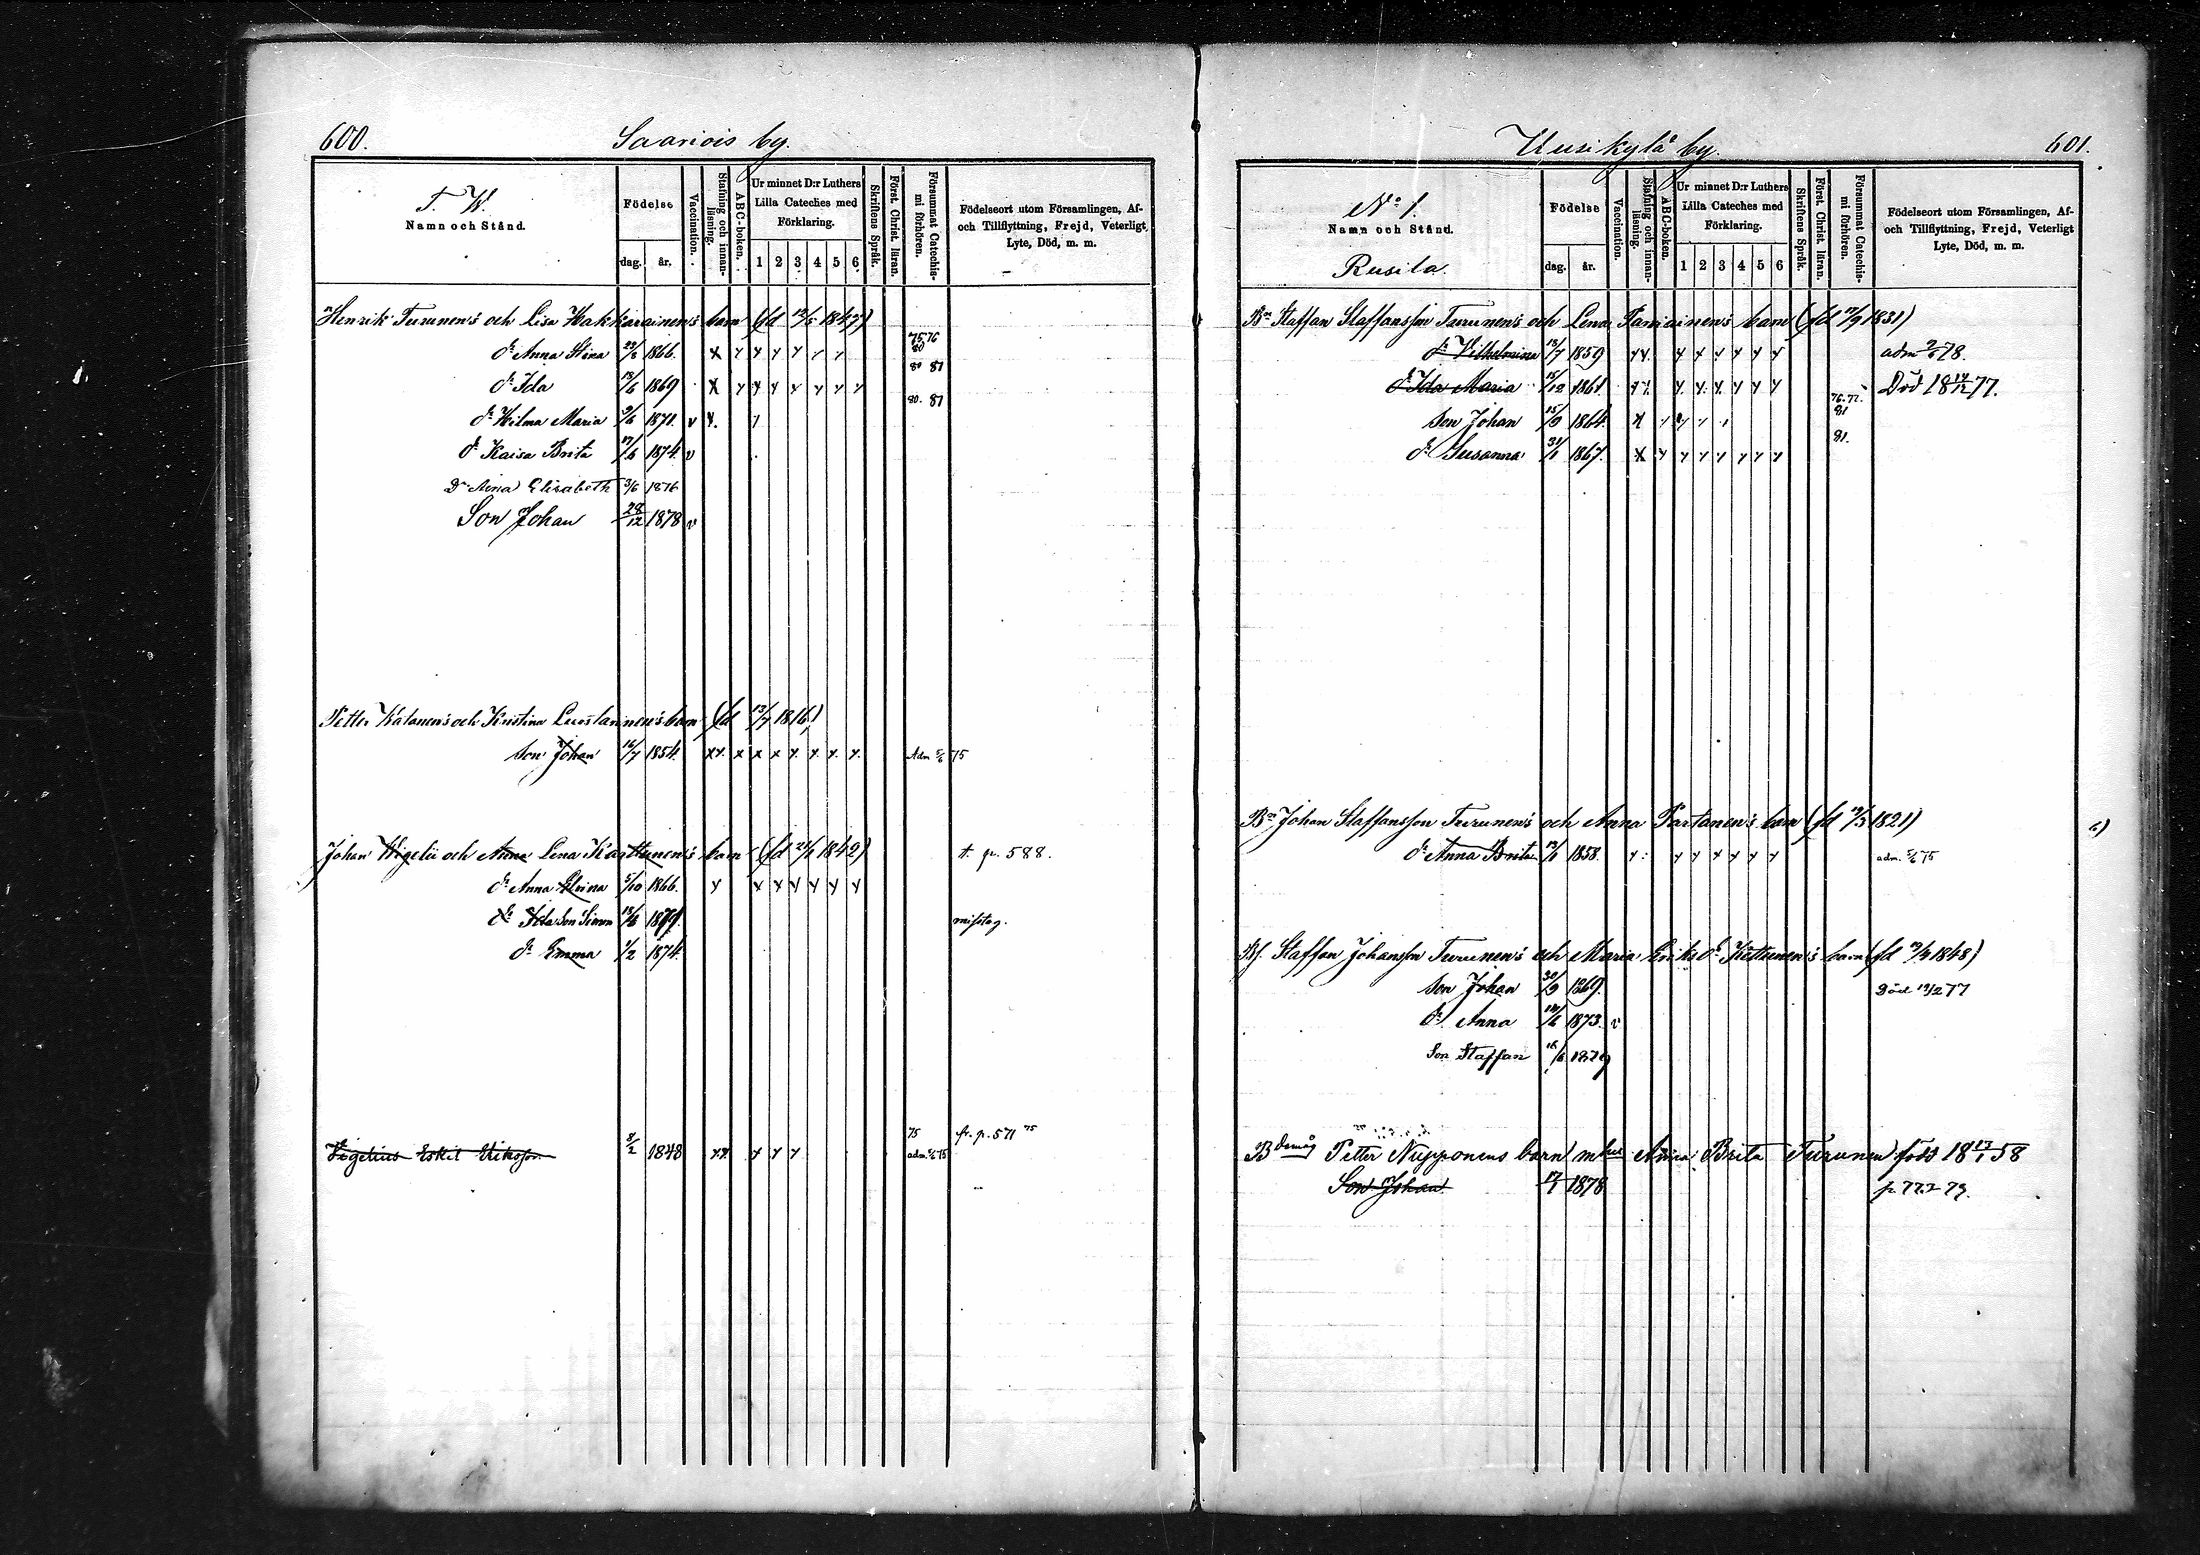 600.
Saariois by.
T. W.
Namn och Stånd.
Födelse
dag. år.
Vaccination.
Stafning och innanläsning.
ABC-boken.
Ur minnet D:r Luthers Lilla Cateches med Förklaring.
1 2 3 4 5 6
Skriftens Språk.
Först. Christ. läran.
Försummat Catechismi förhören.
Födelseort utom Församlingen, Af- och Tillflyttning, Frejd, Veterligt Lyte, Död, m. m.
Henrik Turunen's och Lisa Hakkarainen's barn (fd 1847)
dr Anna Stina 1866. x y y y y y y 75.76 80
dr Ida 18/6 1869 x y y y y y y y 80 81
dr Hilma Maria 9/6 1871. v y. 80. 81
dr Kaisa Brita 17/6 1874. v
Dr Anna Elisabeth 3/6 1876
Son Johan 28/12 1878 v
Petter Kalanen's och Kristina barn (fd 13/7 1816)
Son Johan 16/7 1854. xy. x x x y. y. y. y. Adm 5/6 75
Johan Wigelii och Anna Lena Karttunen's barn (fd 1842) t. p. 588.
dr Anna 5/10 1866. y y y y y y y
dr Ida Son Simon 18/6 misstag.
dr Emma 1/2 1874.
Vigelius Eskil 8/2 1848 xx y y y 75 adm. 5/6 75 fr. p. 571 75
Uusikylä by.
601.
No 1.
Namn och Stånd.
Rusila.
Födelse
dag. år.
Vaccination.
Stafning och innanläsning.
ABC-boken.
Ur minnet D:r Luthers Lilla Cateches med Förklaring.
1 2 3 4 5 6
Skriftens Språk.
Först. Christ. läran.
Försummat Catechismi förhören.
Födelseort utom Församlingen, Af- och Tillflyttning, Frejd, Veterligt Lyte, Död, m. m.
Bn Staffan Staffansson Turunen's och Lena barn (fd 17/9 1831)
dr Vilhelmina 13/7 1859 yy. y y y y y y adm 78.
dr Ida Maria 15/12 1861. y y y y y y Död 18 14/12 77.
Son Johan 15/9 1864. 76.77. 81
dr Susanna 31/1 1867. x y y y y y y y 81.
Bn Johan Staffansson Turunen's och Anna Partanen's barn (fd 19/3 1821)
dr Anna Brita 1858. y y y y y y y adm. 5/6 75
Staffan Johansson Turunen's och Maria Eriksdr Kettunen's barn (fd 1848)
Son Johan 30/9 1869. Död 19/2 77
dr Anna 1873. v
Son Staffan 1879
B Petter Nupponens barn m hu Anna Brita Turunen född 18 13/1 58
Son Johan 17/1 1878 p. 79.